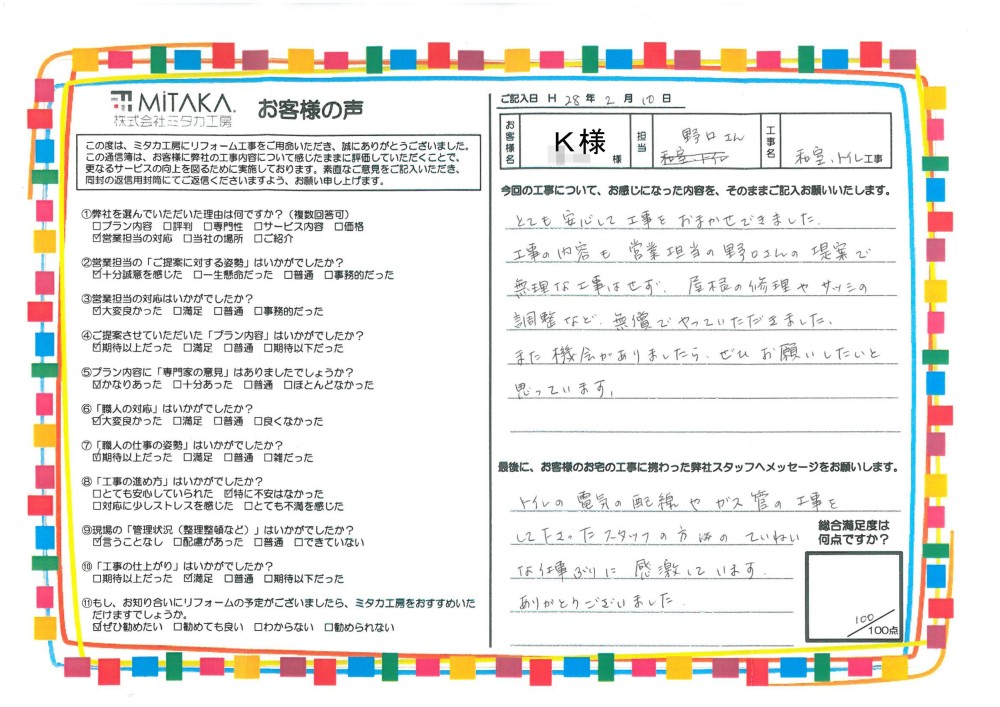 MiTAKA.
株式会社ミタカ工房
お客様の声
この度は、ミタカ工房にリフォーム工事をご用命いただき、誠にありがとうございました。
この通信簿は、お客様に弊社の工事内容について感じたままに評価していただくことで、
更なるサービスの向上を図るために実施しております。素直なご意見をご記入いただき、
同封の返信用封筒にてご返信くださいますよう、お願い申し上げます。
①弊社を選んでいただいた理由は何ですか?(複数回答可)
□プラン内容 □評判 □専門性 □サービス内容 □価格
☑営業担当の対応 □当社の場所 □ご紹介
②営業担当の「ご提案に対する姿勢」はいかがでしたか?
☑十分誠意を感じた □一生懸命だった □普通 □事務的だった
③営業担当の対応はいかがでしたか?
☑大変良かった □満足 □普通 □事務的だった
④ご提案させていただいた「プラン内容」はいかがでしたか?
☑期待以上だった □満足 □普通 □期待以下だった
⑤プラン内容に「専門家の意見」はありましたでしょうか?
☑かなりあった □十分あった □普通 □ほとんどなかった
⑥「職人の対応」はいかがでしたか?
☑大変良かった □満足 □普通 □良くなかった
⑦「職人の仕事の姿勢」はいかがでしたか?
☑期待以上だった □満足 □普通 □雑だった
⑧「工事の進め方」はいかがでしたか?
□とても安心していられた ☑特に不安はなかった
□対応に少しストレスを感じた □とても不満を感じた
⑨現場の「管理状況(整理整頓など)」はいかがでしたか?
☑言うことなし □配慮があった □普通 □できていない
⑩「工事の仕上がり」はいかがでしたか?
□期待以上だった ☑満足 □普通 □期待以下だった
⑪もし、お知り合いにリフォームの予定がございましたら、ミタカ工房をおすすめいた
だけますでしょうか。
☑ぜひ勧めたい □勧めても良い □わからない □勧められない
ご記入日 H 28 年 2 月 10 日
お客様名 K様 様 担当 野口さん 和室、トイレ 工事名 和室、トイレ工事
今回の工事について、お感じになった内容を、そのままご記入お願いいたします。
とても安心して工事をおまかせできました。
工事の内容も営業担当の野口さんの提案で
無理な工事はせず、屋根の修理やサッシの
調整など、無償でやっていただきました。
また機会がありましたら、ぜひお願いしたいと
思っています。
最後に、お客様のお宅の工事に携わった弊社スタッフへメッセージをお願いします。
トイレの電気の配線やガス管の工事を
して下さったスタッフの方々の ていねい
な仕事ぶりに感激しています。
ありがとうございました。
総合満足度は
何点ですか?
100/100点